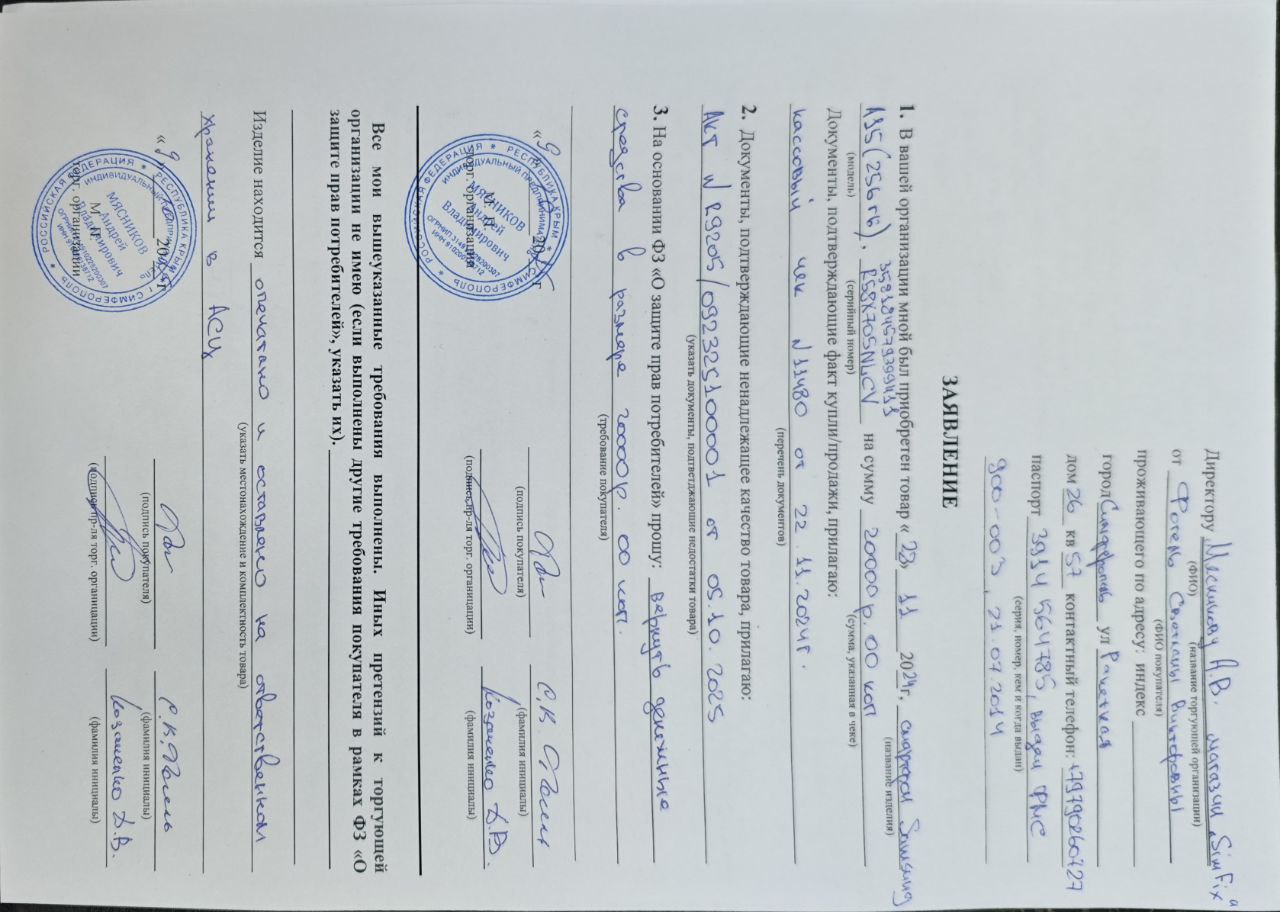 Директору Мясникову А.В. магазин „SimFix“
(ФИО) (название торгующей организации)
от Фогель Светланы Викторовны
(ФИО покупателя)
проживающего по адресу: индекс
город Симферополь ул Ракетная
дом 26 кв 57 контактный телефон:
паспорт 3914 564785, выдан ФМС
(серия, номер, кем и когда выдан)
900-003, 21.07.2014
ЗАЯВЛЕНИЕ
1. В вашей организации мной был приобретен товар « 22» 11 2024г. смартфон Samsung
(название изделия)
A35(256гб), R58X705NLCV на сумму 20000р. 00 коп
(модель) (серийный номер) (сумма, указанная в чеке)
Документы, подтверждающие факт купли/продажи, прилагаю:
кассовый чек N11480 от 22.11.2024г.
(перечень документов)
2. Документы, подтверждающие ненадлежащее качество товара, прилагаю:
Акт N R9205/092325100001 от 05.10.2025
(указать документы, подтветджающие недостатки товара)
3. На основании ФЗ «О защите прав потребителей» прошу: вернуть денежные
средства в размере 20000р. 00 коп.
(требование покупателя)
«9 20 г С.В. Фогель
(подпись покупателя) (фамилия инициалы)
торг. организация Козаченко Д.В.
(подпись пр-ля торг. организации) (фамилия инициалы)
РОССИЙСКАЯ ФЕДЕРАЦИЯ * РЕСПУБЛИКА КРЫМ * Г. СИМФЕРОПОЛЬ
ИНДИВИДУАЛЬНЫЙ ПРЕДПРИНИМАТЕЛЬ
МЯСНИКОВ
Андрей
Владимирович
Все мои вышеуказанные требования выполнены. Иных претензий к торгующей
организации не имею (если выполнены другие требования покупателя в рамках ФЗ «О
защите прав потребителей», указать их).
Изделие находится опечатано и оставлено на ответственном
(указать местонахождение и комплектность товара)
хранении в АСЦ
«9 20 г С.В. Фогель
(подпись покупателя) (фамилия инициалы)
М П
торг. организации Козаченко Д.В.
(подпись пр-ля торг. организации) (фамилия инициалы)
РОССИЙСКАЯ ФЕДЕРАЦИЯ * РЕСПУБЛИКА КРЫМ * Г. СИМФЕРОПОЛЬ
МЯСНИКОВ
Андрей
Владимирович